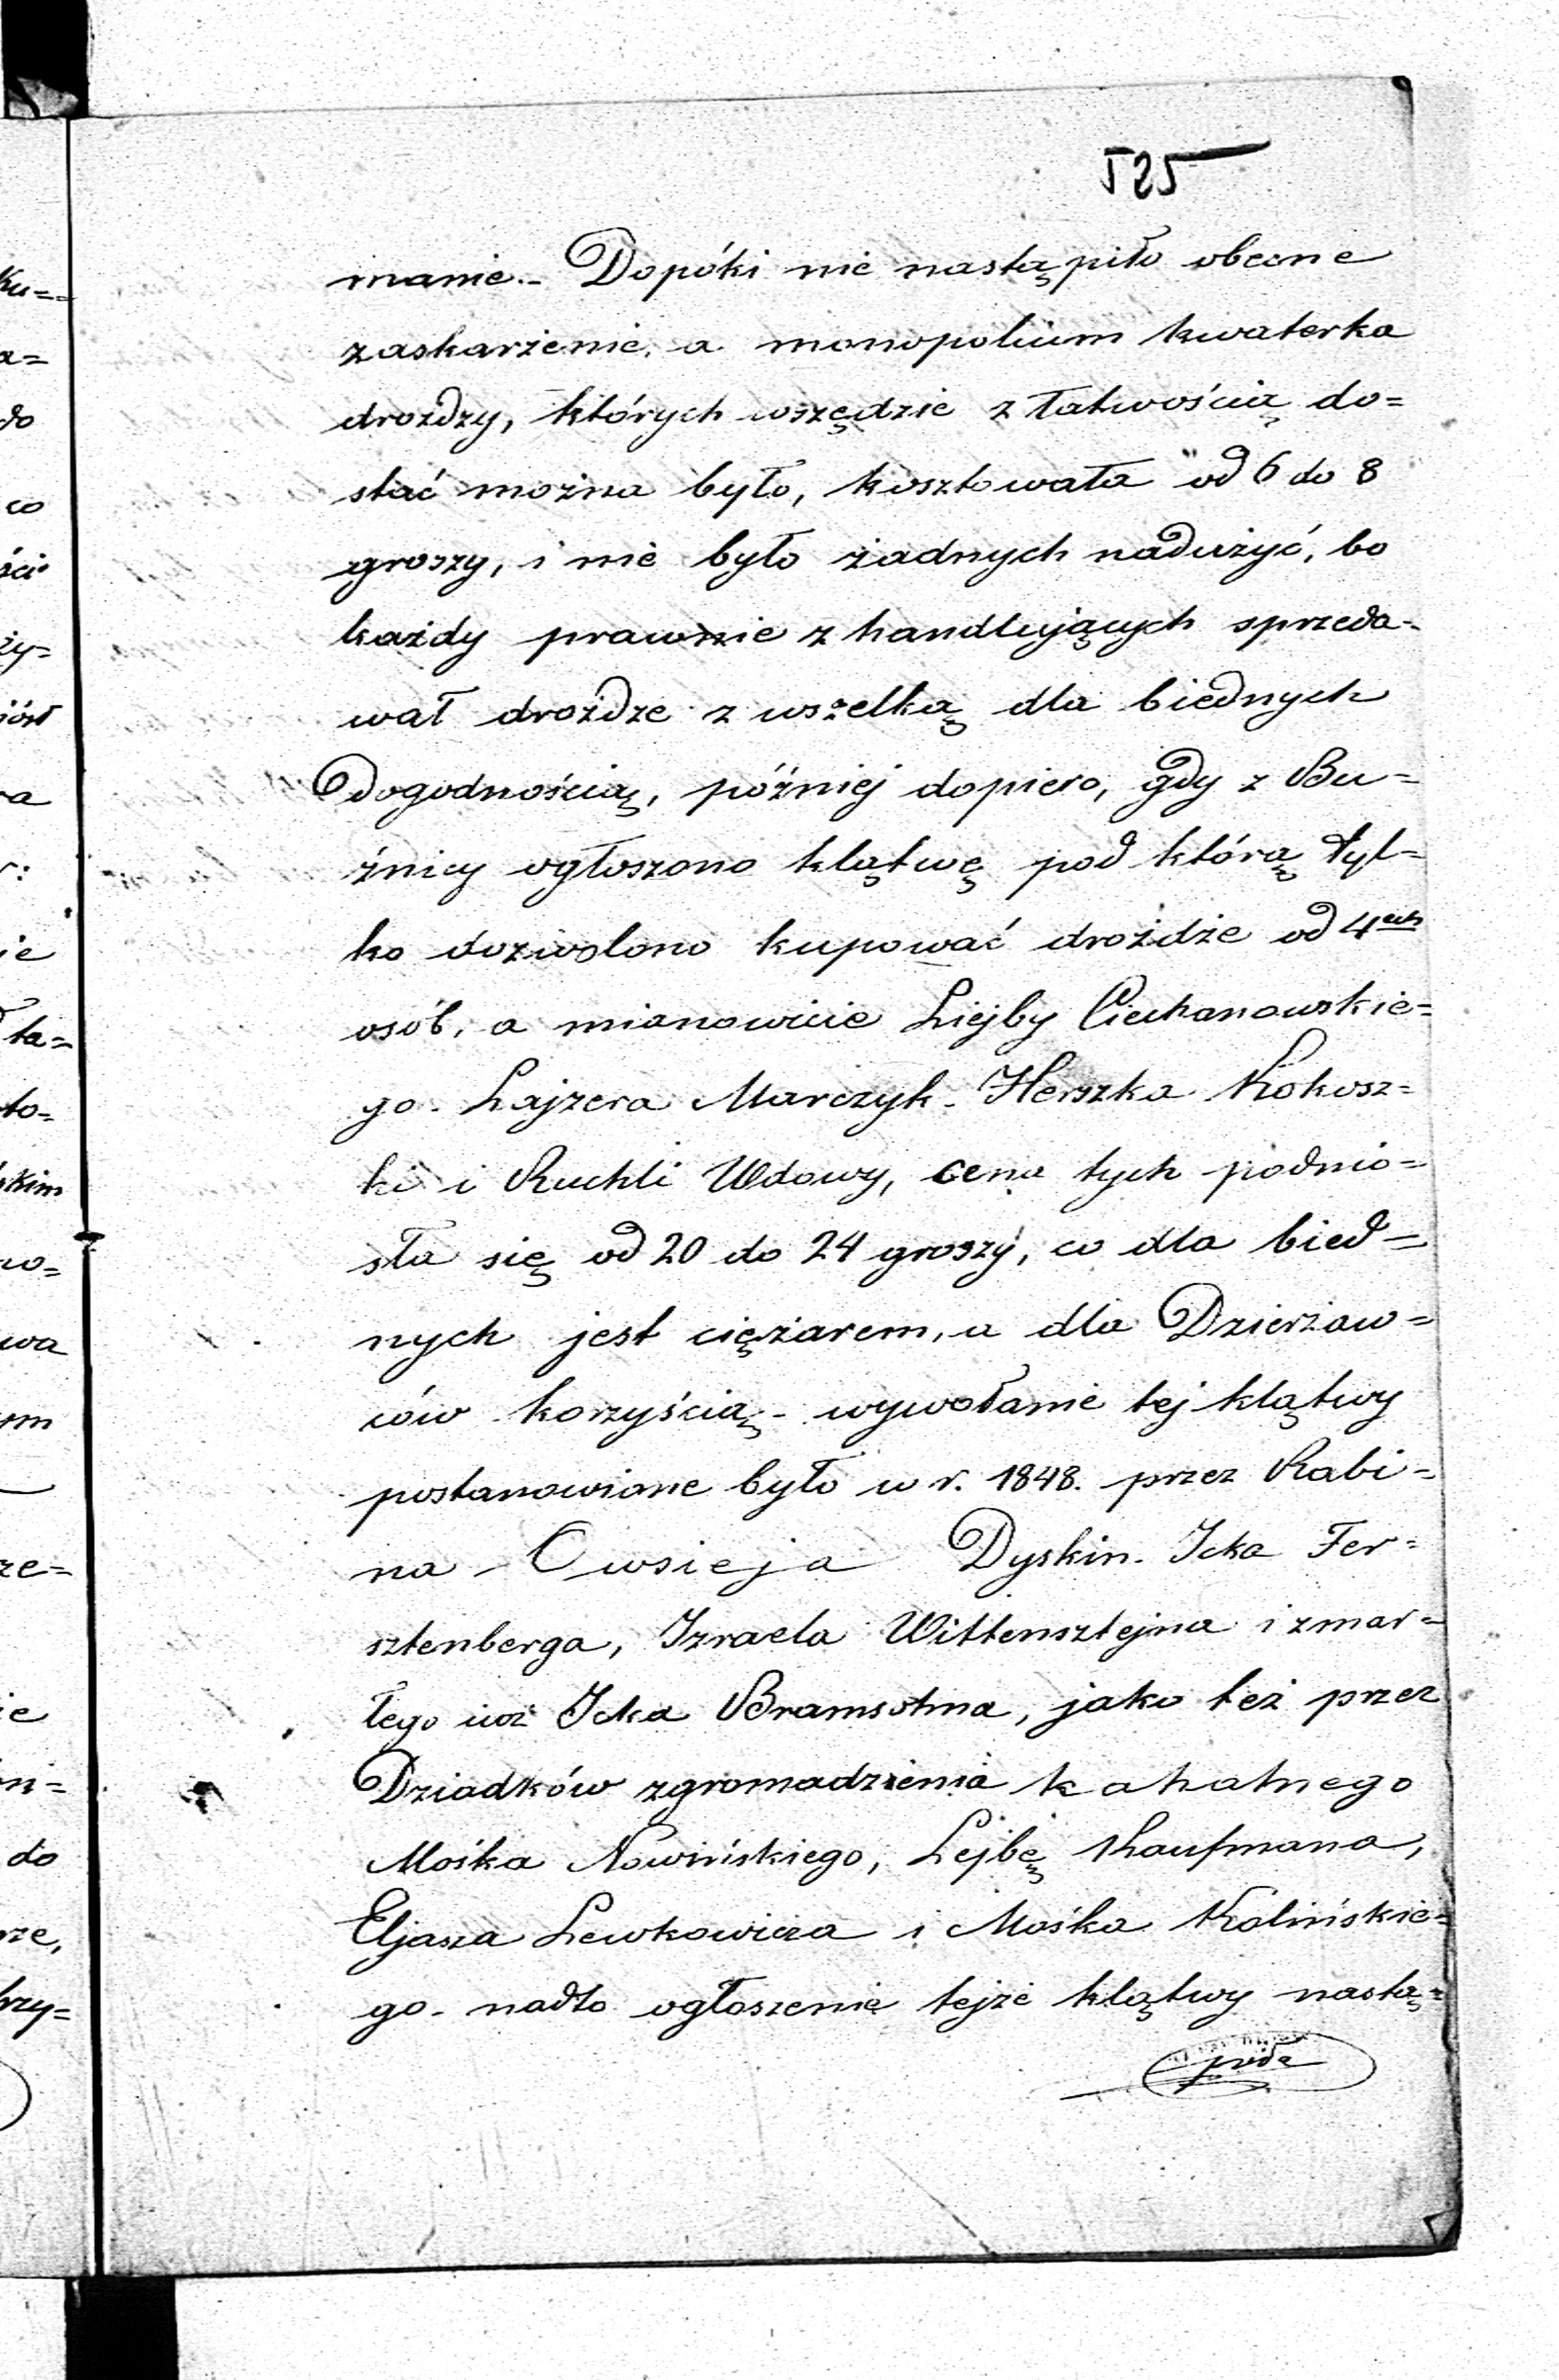 525
manie.- Dopóki nie nastąpiło obecne
zaskarżenie, a monopolium kwaterka
drożdzy, których wszędzie z łatwością do=
stać można było, kosztowała od 6 do 8
groszy, i nie było żadnych nadużyć, bo
każdy prawnie z handlujących sprzeda-
wał drożdze z wszelką dla biednych
dogodnością, później dopiero, gdy z Bu=
źnicy ogłoszono klątwę pod którą tyl=
ko dozwolono kupować drożdże od 4ech
osób, a mianowicie Liejby Ciechanowskie=
go. Lajzera Marczyk. Herszka Kokosz=
ki i Ruchli Wdowy, cena tych podnio=
sła się od 20 do 24 groszy, co dla bied=
nych jest ciężarem, a dla Dzierżaw=
ców korzyścią - wywołanie tej klątwy
postanowione było w r. 1848. przez Rabi=
na Owsieja Dyskin. Icka Fer=
sztenberga, Izraela Wittensztejna i zmar=
łego już Icka Bramsohna, jako też przez
Dziadków zgromadzienia kahalnego
Mośka Nowińskiego, Lejbę Kaufmana,
Eljasza Lewkowicza i Mośka Kolińskie=
go - nadto ogłoszenie tejże klątwy nastą=